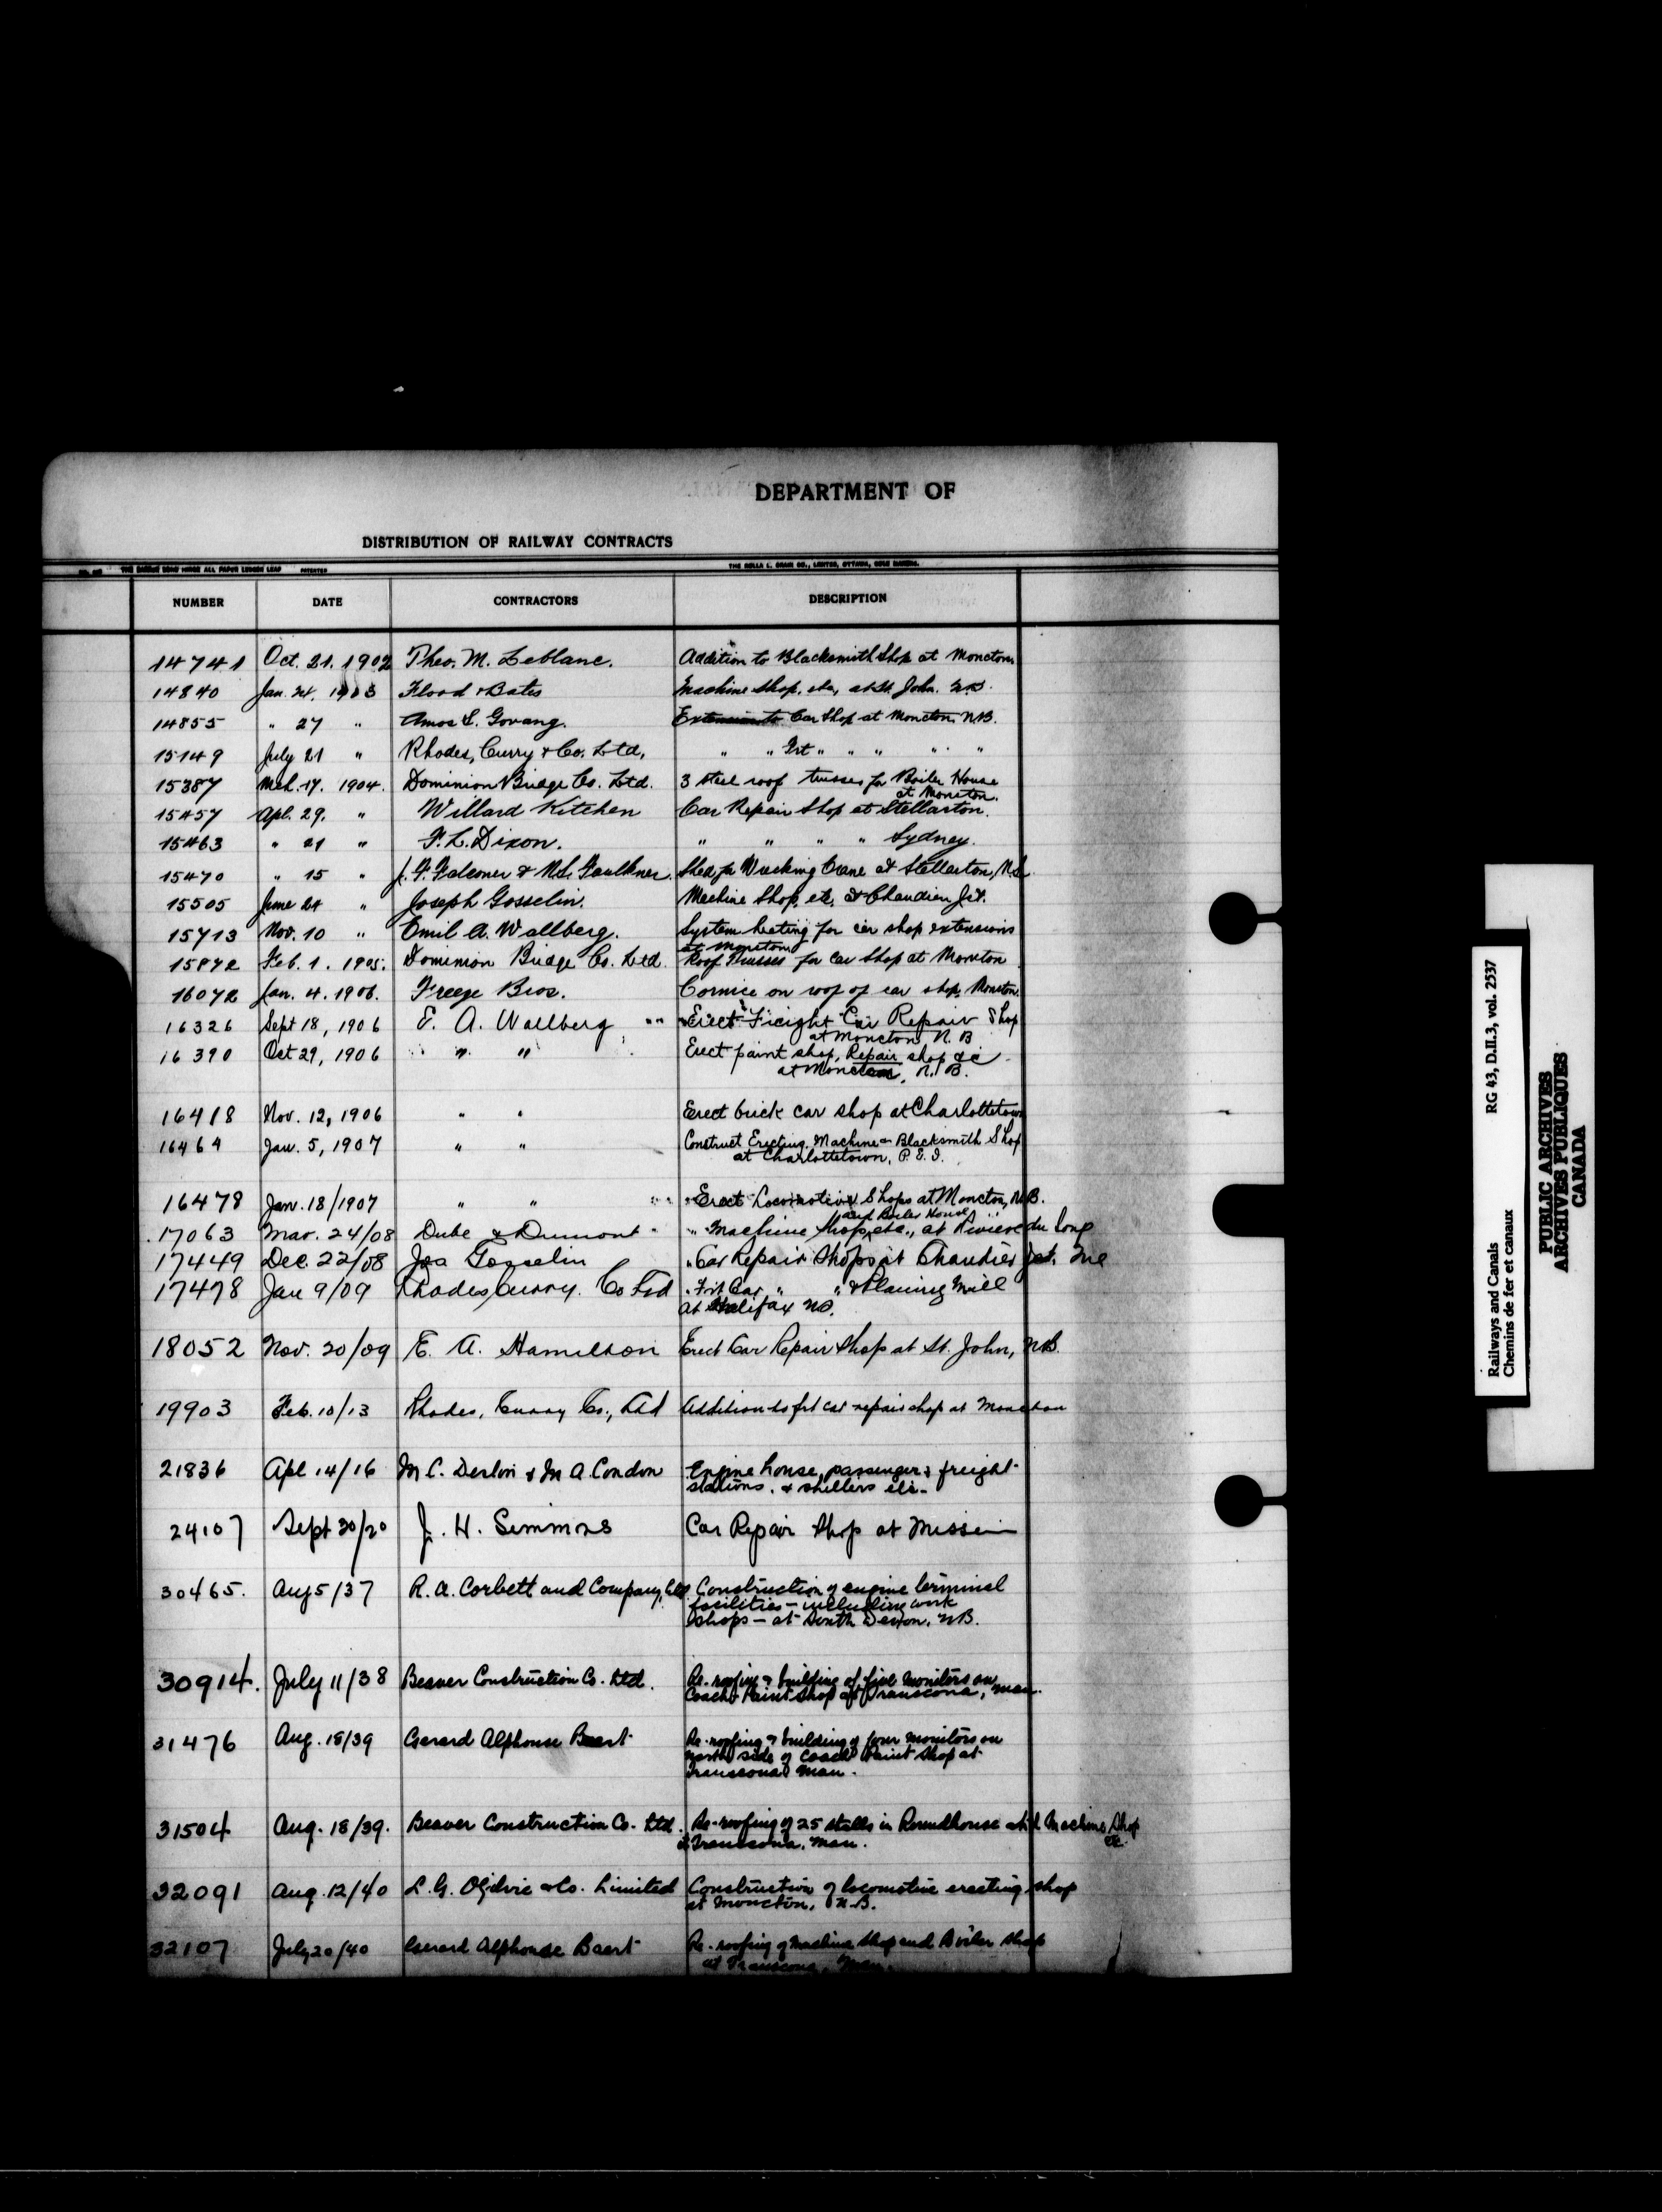 DEPARTMENT OF
DISTRIBUTION OF RAILWAY CONTRACTS
NUMBER DATE CONTRACTORS DESCRIPTION
14741 Oct. 21. 1902 Theo. M. Leblanc. Addition to Blacksmith Shop at Moncton.
14840 Jan. 24. 1903 Flood & Bates Machine Shop, etc, at St. John. N.B.
14855 " 27 " Amos L. Car Shop at Moncton N.B.
15149 July 21 " Rhodes, Curry & Co. Ltd, " " Frt " " " " "
15387 Mch. 17. 1904. Dominion Bridge Co. Ltd. 3 steel roof trusses for Boiler House
at Moncton.
15457 Apl. 29. " Willard Kitchen Car Repair Shop at Stellarton.
15463 " 21 " F. L. Dixon. " " " " Sydney.
15470 " 15 " J. F. Falconer & N.L. Faulkner. Shed for Wrecking Crane at Stellarton, N.S.
15505 June 24 " Joseph Gosselin. Machine Shop, etc, at Chaudiere Jct.
15713 Nov. 10 " Emil A. Wallberg. System heating for car shop extensions
at Moncton
15872 Feb. 1. 1905. Dominion Bridge Co. Ltd. Roof Trusses for Car Shop at Moncton
16072 Jan. 4. 1906. Freeze Bros. Cornice on roof of car shop, Moncton.
16326 Sept 18, 1906 E. A. Wallberg Erect Freight Car Repair Shop
at Moncton N. B
16390 Oct 29, 1906 " " Erect paint shop, Repair shop &c
at Moncton, N. B.
16418 Nov. 12, 1906 " " Erect brick car shop at Charlottetown
16464 Jan. 5, 1907 " " Construct Erecting, Machine & Blacksmith Shop
at Charlottetown, P. E. I.
16478 Jan. 18/1907 " " Erect Locomotive Shops at Moncton, N.B.
and Boiler House
17063 Mar. 24/08 Dube & Dumont " Machine Shop, etc., at Riviere du Loup
17449 Dec. 22/08 Jos Gosselin " Car Repair Shops at Chaudier Jct. Que
17478 Jan 9/09 Rhodes, Curry. Co Ltd " Frt Car " " & Planing Mill
at Halifax NS.
18052 Nov. 20/09 E. A. Hamilton Erect Car Repair Shop at St. John, N.B.
19903 Feb. 10/13 Rhodes, Curry Co., Ltd Addition to frt car repair shop at Moncton
21836 Apl 14/16 M. C. & M A. Condon Engine house, passenger & freight
stations, & shelters etc.
24107 Sept 30/20 J. H. Simmons Car Repair Shop at
30465. Aug 5/37 R. A. Corbett and Company, Ltd. Construction of engine terminal
facilities - including work
shops - at South Devon, N.B.
30914. July 11/38 Beaver Construction Co. Ltd. Re-roofing & building of five monitors on
Coach Paint Shop at Transcona, Man.
31476 Aug. 18/39 Gerard Alphonse Baert Re-roofing & building of four monitors on
north side of Coach Paint Shop at
Transcona Man.
31504 Aug. 18/39. Beaver Construction Co. Ltd. Re-roofing of 25 stalls in Roundhouse and Machine Shop
at Transcona, Man. etc.
32091 Aug. 12/40 L. G. Ogilvie & Co. Limited Construction of locomotive erecting shop
at Moncton, N.B.
32107 July 20/40 Gerard Alphonse Baert Re-roofing of Machine Shop and Boiler Shop
at Transcona, Man.
Railways and Canals RG 43, D.II.3, vol. 2537
Chemins de fer et canaux
PUBLIC ARCHIVES
ARCHIVES PUBLIQUES
CANADA